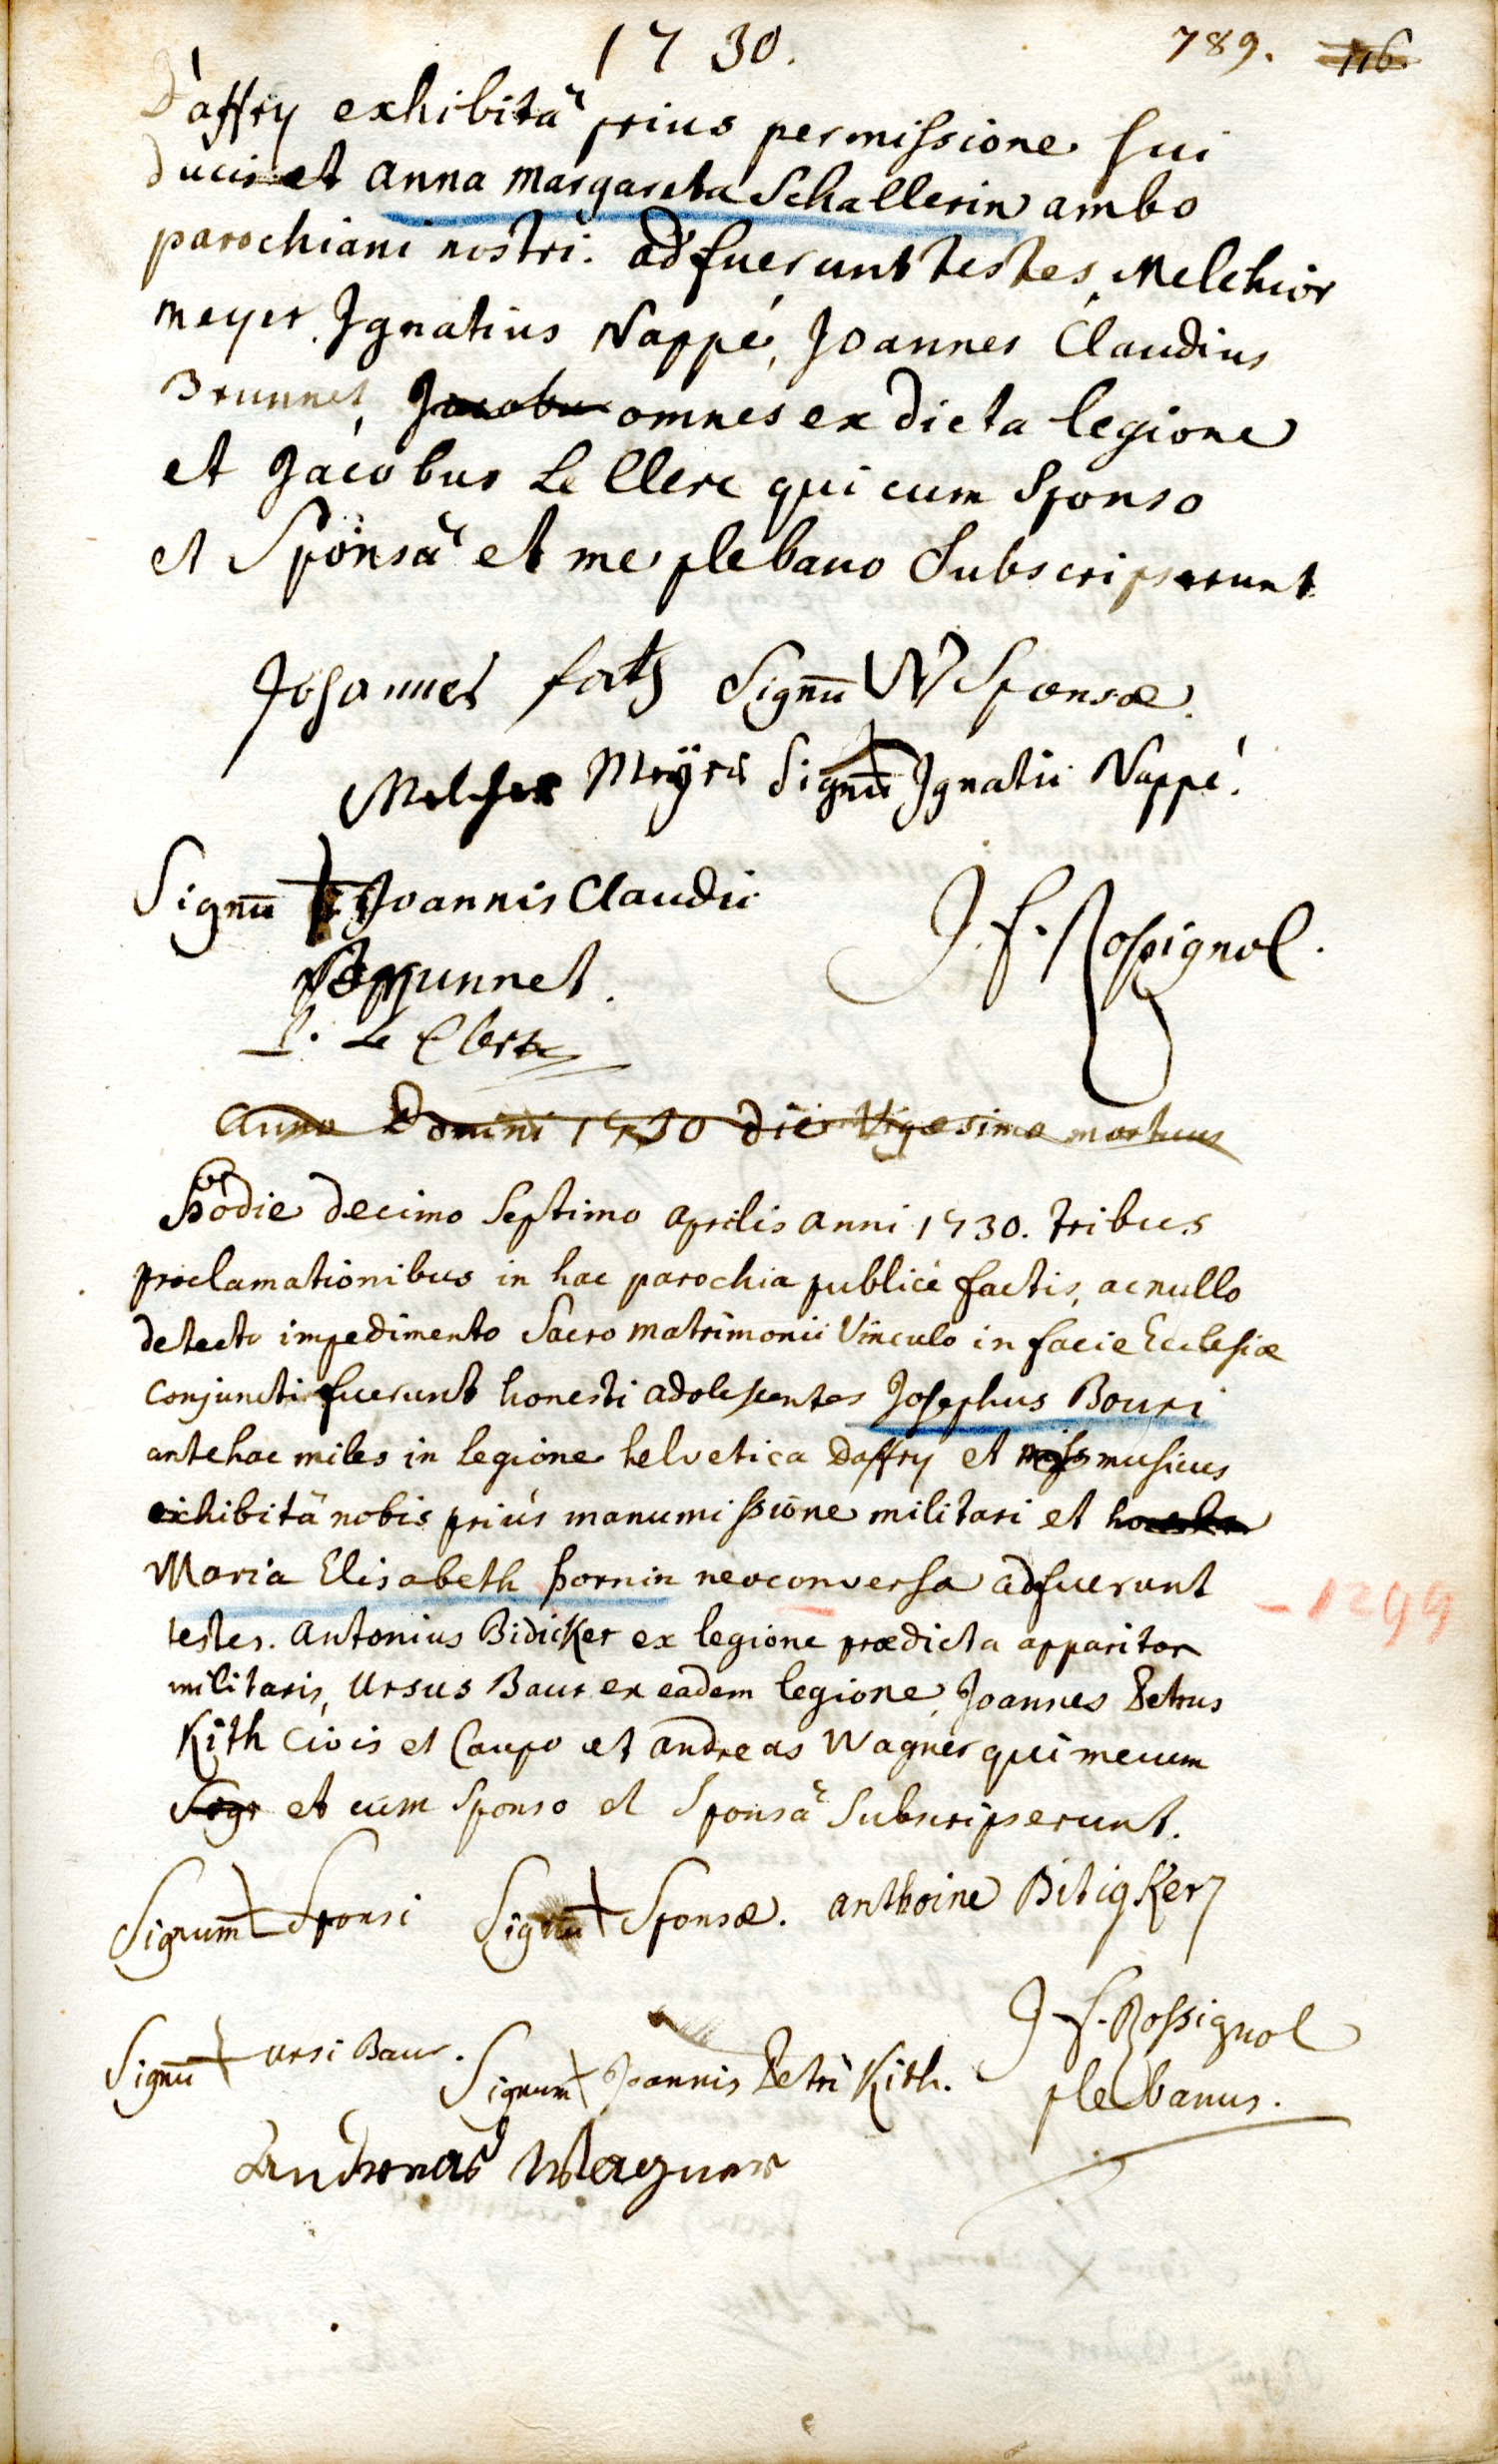 1730. 789. 116.
D'affry exhibitâ prius permissione sui
ducis et anna Margareta Schallerin ambo
parochiani nostri. adfuerunt testes, Melchior
meyer, Ignatius Nappé, Joannes Claudius
Brunnet, Jacobus omnes ex dicta legione
et Jacobus Le Clerc qui cum Sponso
et Sponsâ et me plebano Subscripserunt
Johannes fath Signū W Sponsæ.
Melcher Meÿer Signū Ignatii Nappé.
Signū Joannis Claudii
Brunnet. J. f. Rossignol.
Le Clerc
Anno Domini 1730 die Vigesima
hodie decimo Septimo aprilis anni 1730. tribus
proclamationibus in hac parochia publicè factis, ac nullo
detecto impedimento Sacro matrimonii Vinculo in facie Ecclesiæ
conjuncti fuerunt honesti adolescentes Josephus Bouri
antehac miles in legione helvetica Daffry et musicus
exhibitâ nobis priùs manumissione militari et honesta
Maria Elisabeth hornin neoconversa adfuerunt
-1299
testes. Antonius Bidicker ex legione prædicta apparitor
militaris, Ursus Baur ex eadem legione, Joannes Petrus
Kith Civis et Caupo et andreas Wagner qui mecum
et cum Sponso et Sponsâ Subscripserunt.
Signum Sponsi Signū Sponsæ. anthoine Bitigker
Signū ursi Baur. Signum Joannis Petri Kith. J. f. Rossignol
plebanus.
Andreas Wagner